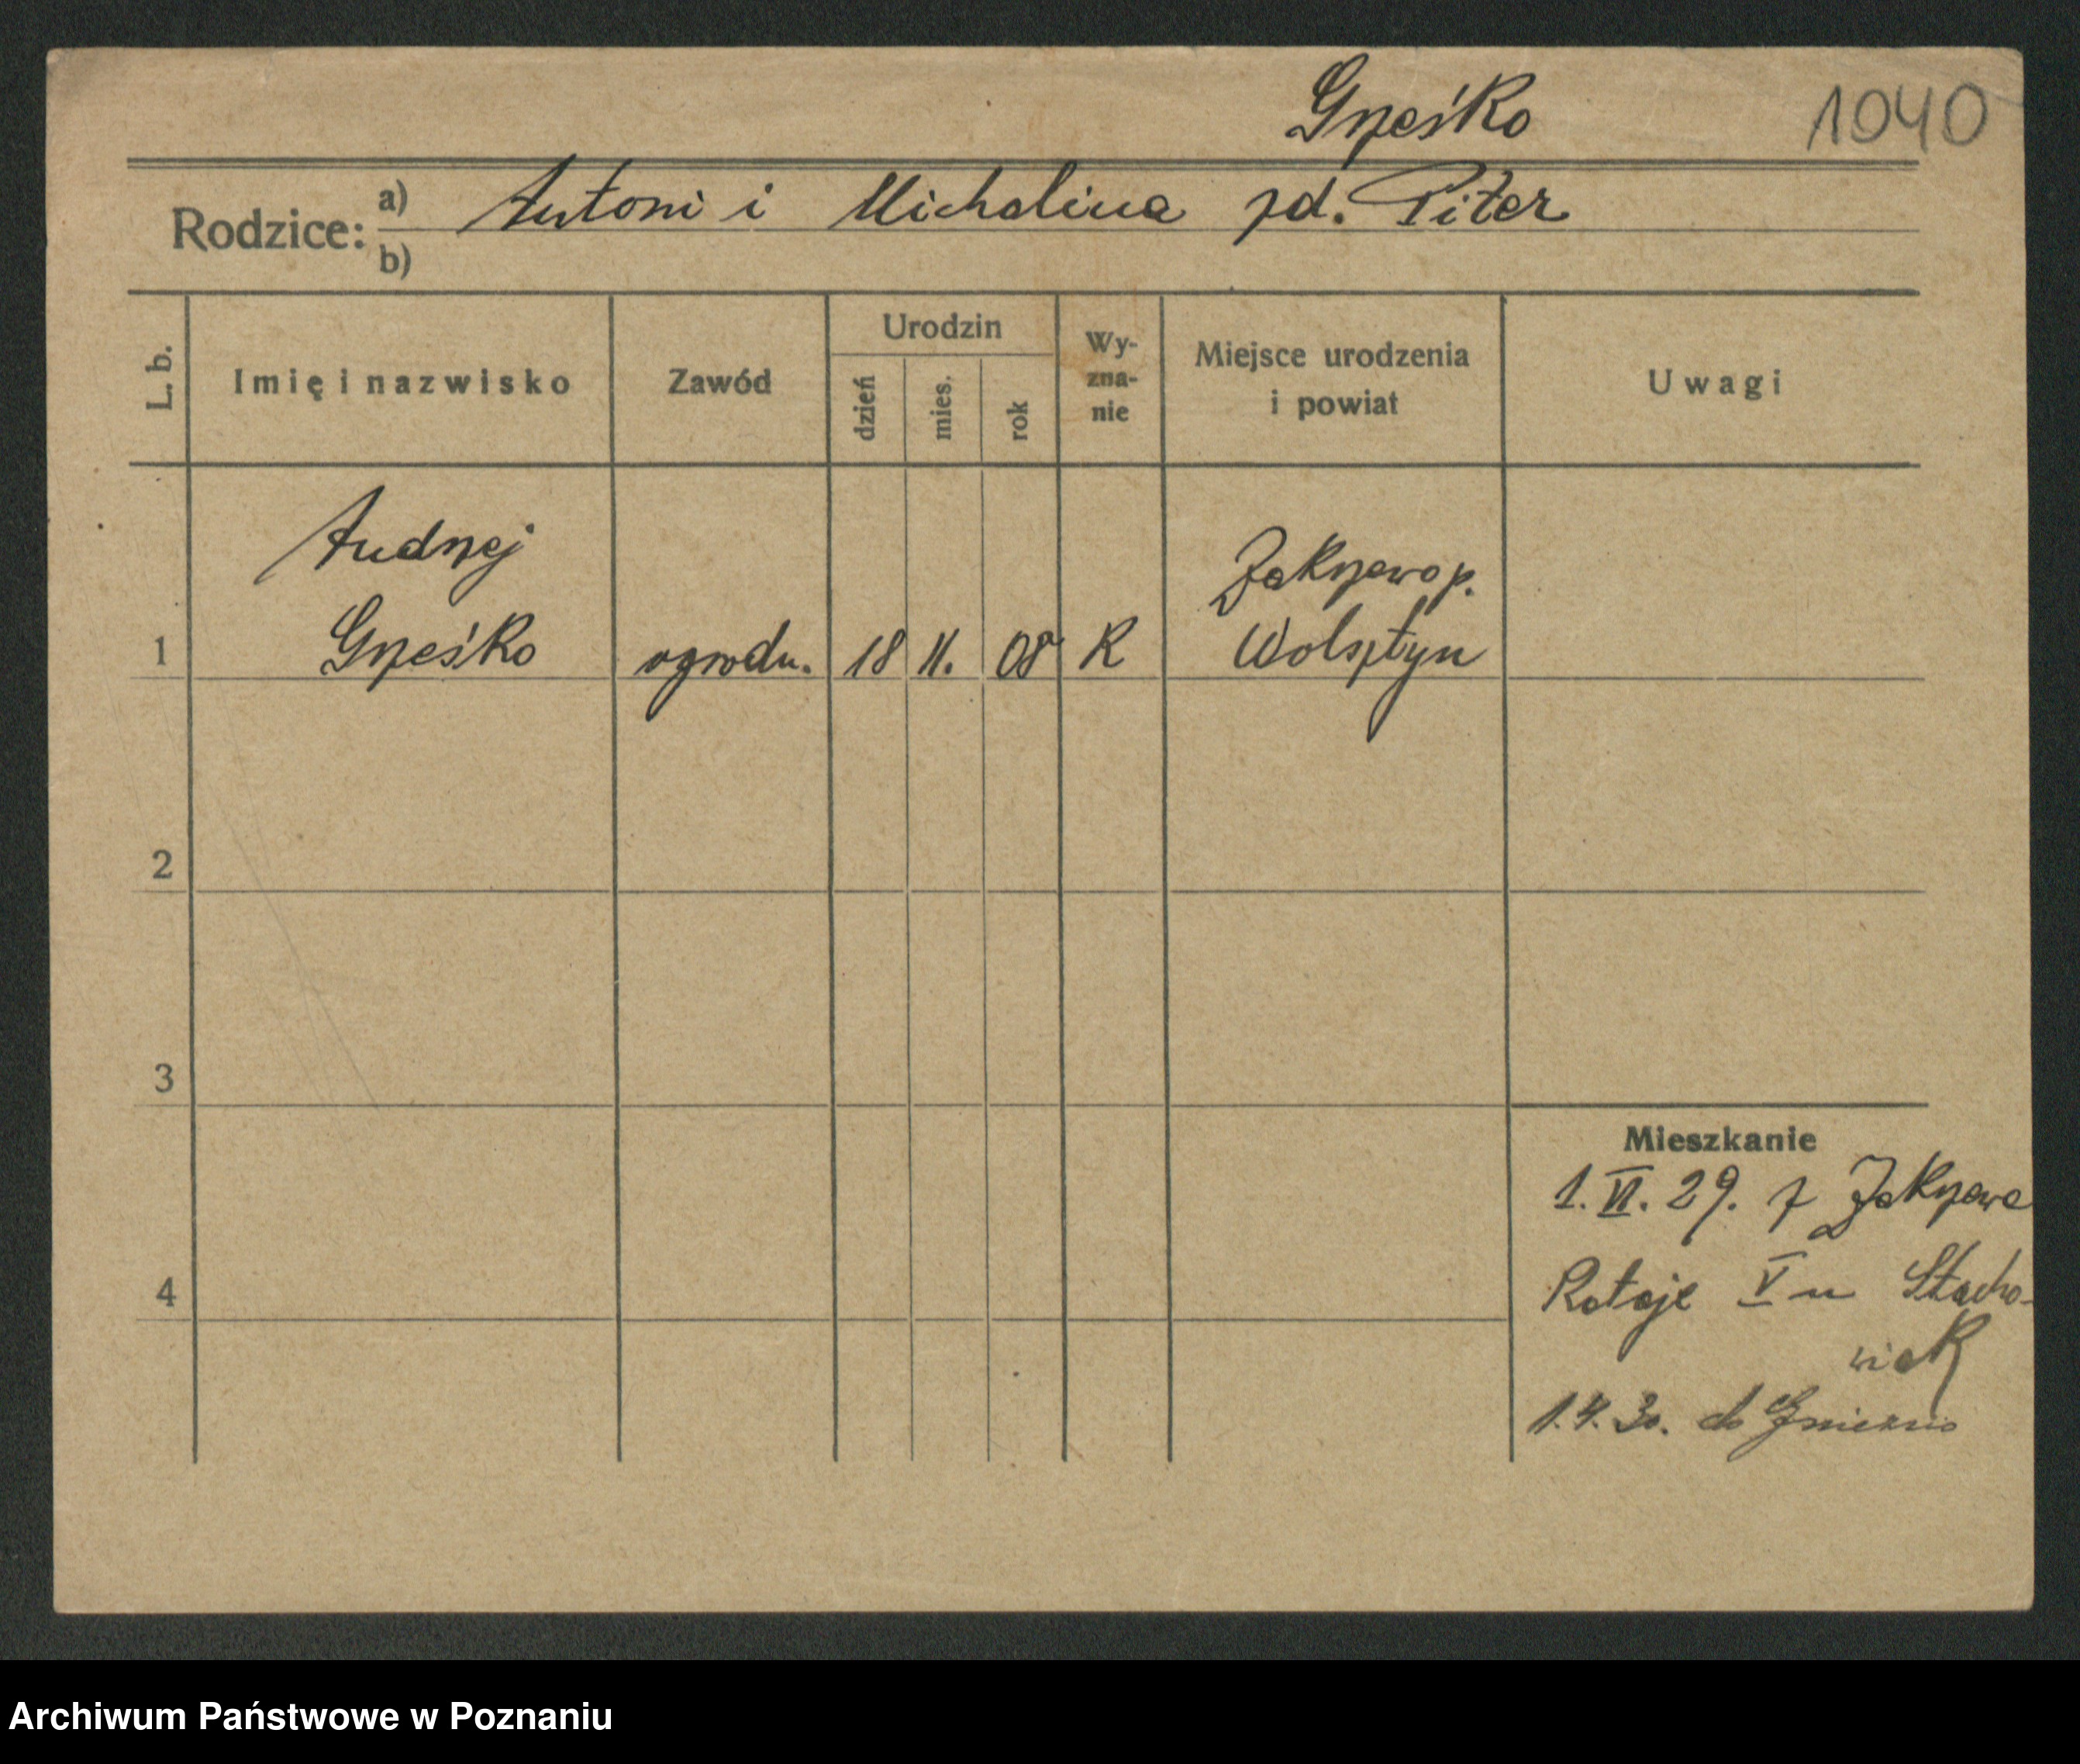 Grześko
1040
Rodzice: a) Antoni i Michalina zd. Piter
b)
L. b.
Imię i nazwisko
Zawód
Urodzin
dzień
mies.
rok
Wy-
zna-
nie
Miejsce urodzenia
i powiat
Uwagi
Andrzej
Zakrzewo p.
1 Grześko ogrodn. 18 11. 08 K Wolsztyn
2
3
Mieszkanie
1. VI. 29. z Zakrzewa
4
Rataje V u Stacho-
wiak
1.4.30. do Gniezno
Archiwum Państwowe w Poznaniu